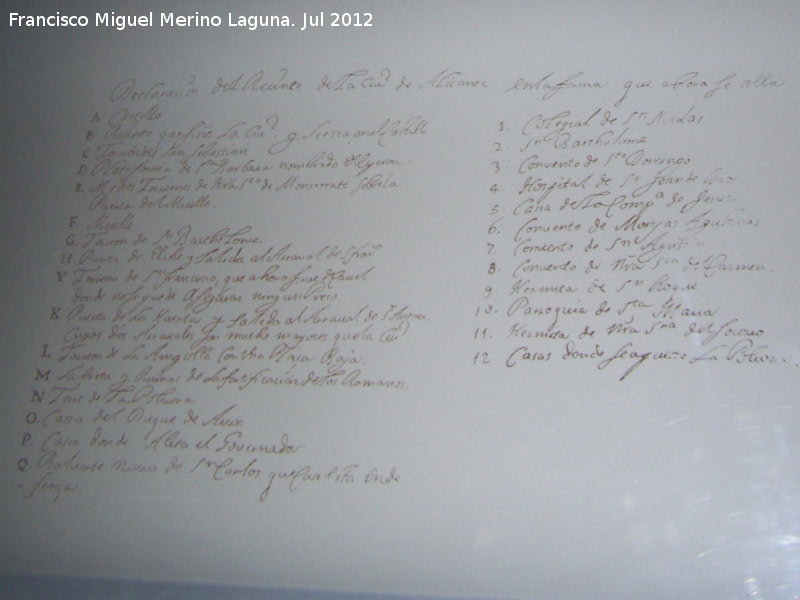 Francisco Miguel Merino Laguna. Jul 2012
Declarazion del Rezinto de La Ciud. de Alicante en la forma que ahora se alla
A Castillo
B Rezinto que tiene La Ciud. y sierra en el Castillo
C Torreon de San Sebastian
D Plataforma de Sta Barbara nombrado el
E Torreones de Nra Sra de Monserrate sobre la
Puerta del Muelle.
F Muelle
G. Torreon de Sn Bartholome
H Puerta de Elche y salida al Arraval de Sn Franco
Y Torreon de Sn Francisco, que ahora sirve de
donde no se puede asegurar ningun
K Puerta de La Huerta y salida al Arraval de Sn Anton
Cuyos dos Arravales son mucho mayores que la Ciud.
L Torreon de La con una Plaza Baja.
M y Ruinas de la fortificazion de los Romanos.
N Torre de La Polvora
O. Cassa del Duque de
P. Cassa donde el Governador
Q. Baluarte nuevo de Sn Carlos que casi esta en de
fensa.
1. Colegial de Sn Nicolas.
2 Sn Bartholome
3. Convento de Sto Domingo
4. Hospital de Sn Joan de Dios
5. Cassa de La Compa de Jesus
6. Convento de Monjas Agustinas
7. Convento de Sn Agustin
8. Convento de Nra Sra del Carmen.
9 Hermita de Sn Roque
10. Parroquia de Sta Maria
11. Hermita de Nra Sra del Socorro
12 Casas donde se La Polvora.